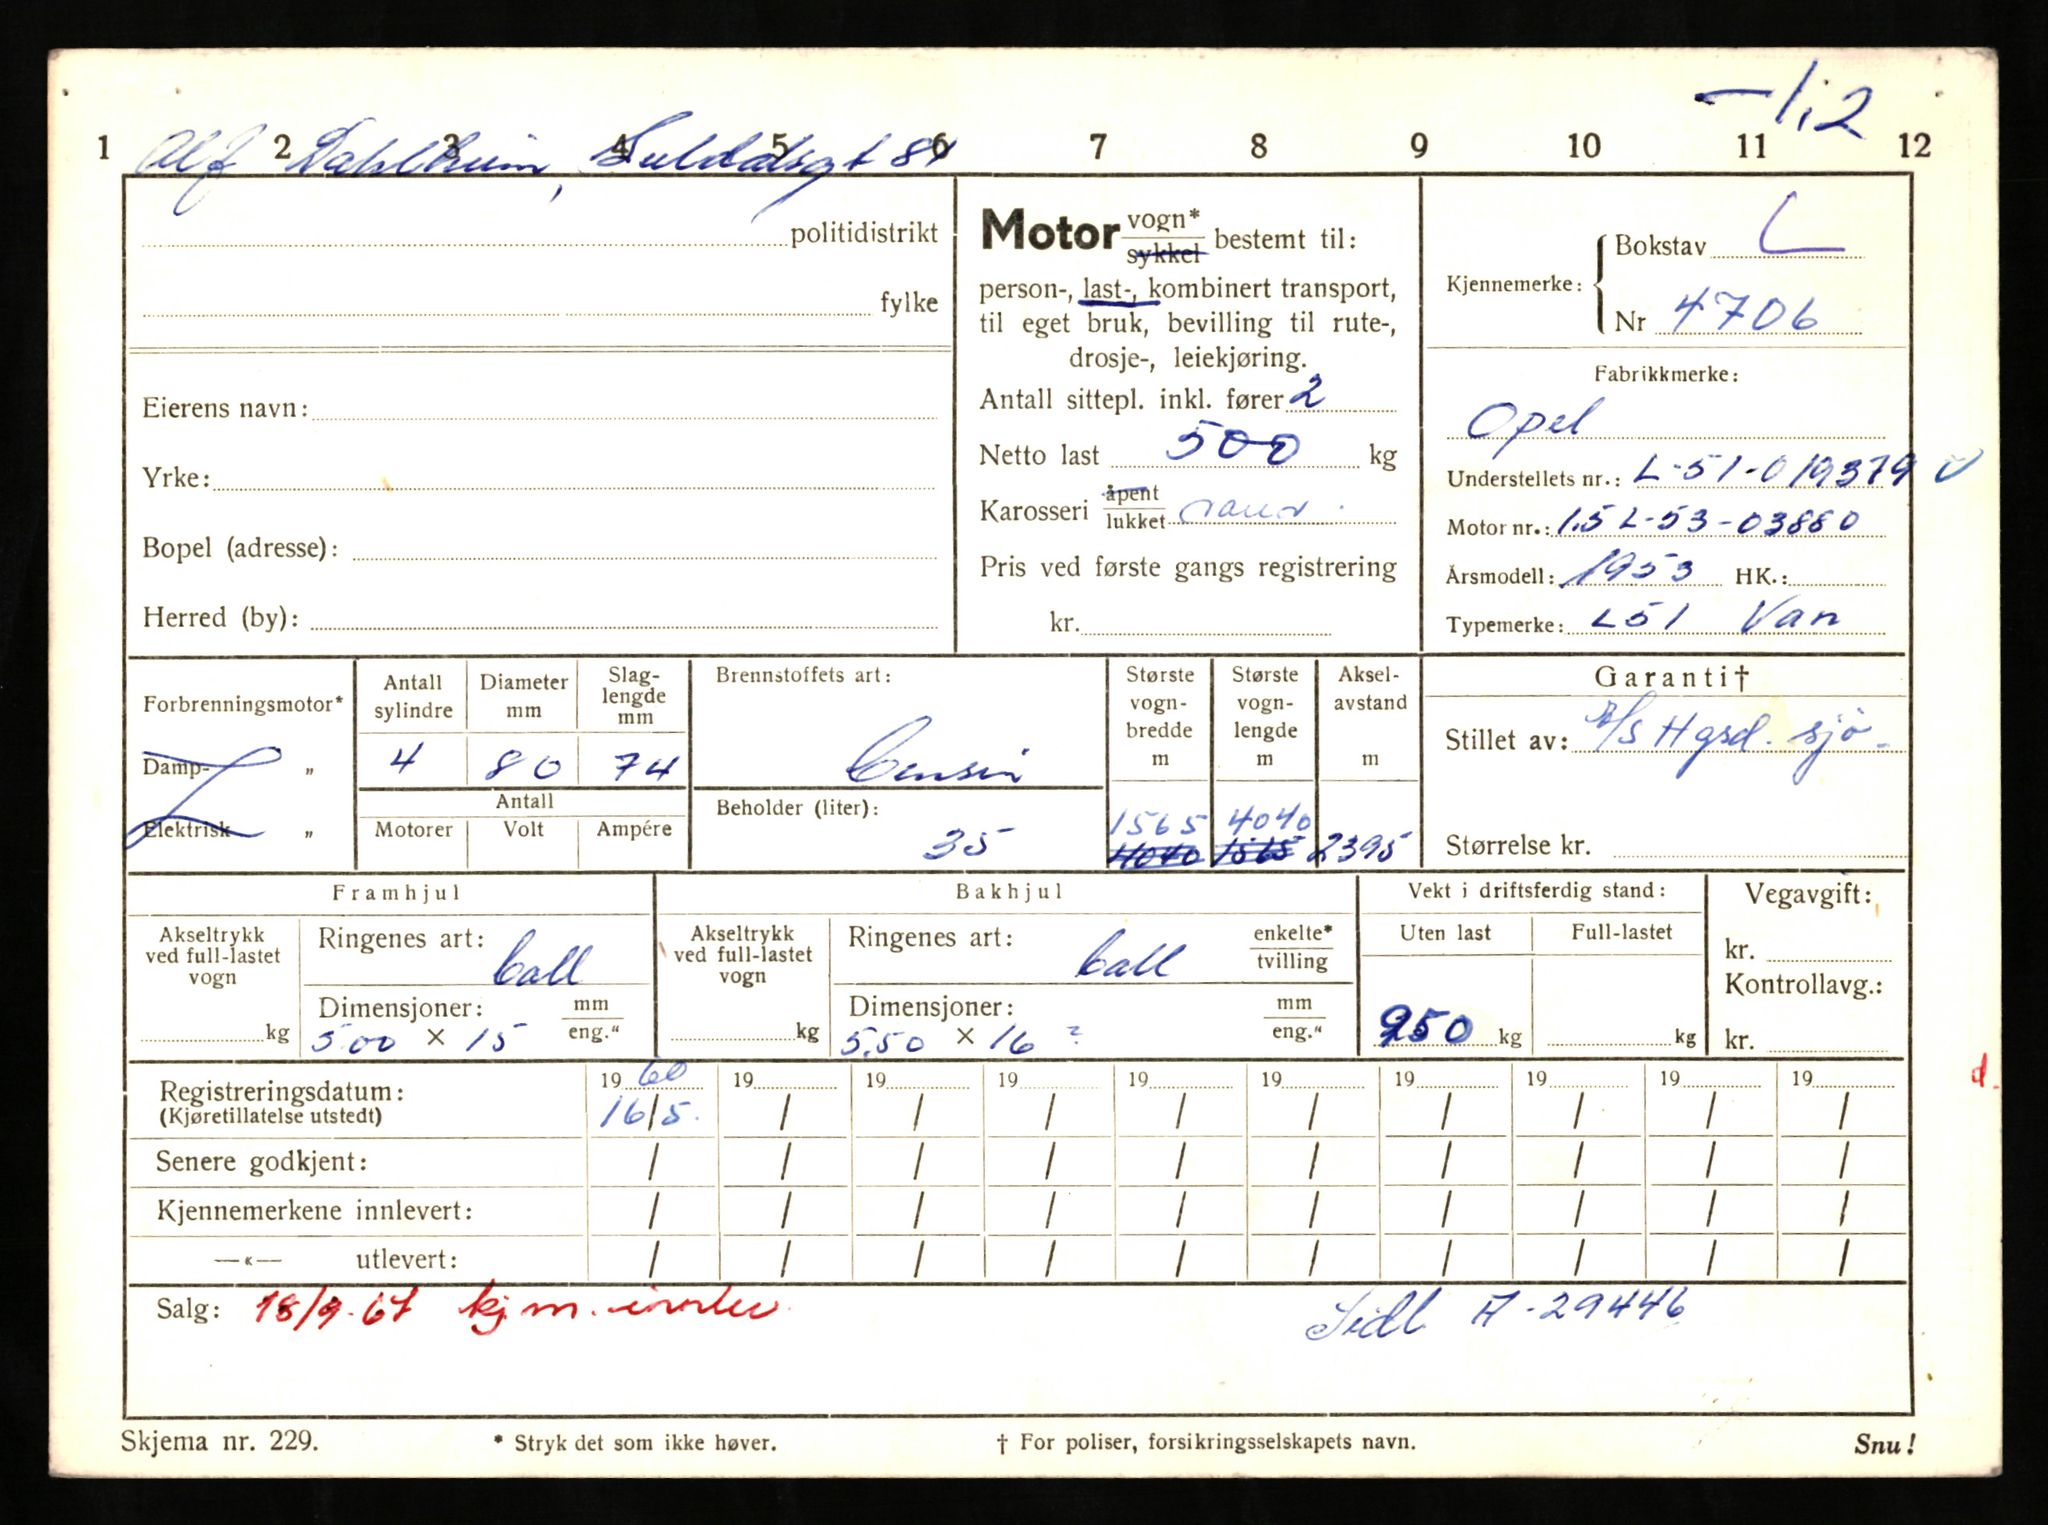 -/12
1 2 3 4 5 6 7 8 9 10 11 12
Alf Dahlheim, Suldalsgt 84
politidistrikt
fylke
Eierens navn:
Yrke:
Bopel (adresse):
Herred (by):
Motor vogn* sykkel bestemt til:
person-, last-, kombinert transport,
til eget bruk, bevilling til rute-,
drosje-, leiekjøring.
Antall sittepl. inkl. fører 2
Netto last 500 kg
Karosseri åpent lukket
Pris ved første gangs registrering
kr.
Kjennemerke: Bokstav L
Nr 4706
Fabrikkmerke:
Opel
Understellets nr.: L-51-019379
Motor nr.: 1.5 L-53-03880
Årsmodell: 1953 HK.:
Typemerke: L51 Van
Forbrenningsmotor*
Damp- „
Elektrisk „
Antall sylindre 4
Diameter mm 80
Slaglengde mm 74
Antall
Motorer Volt Ampére
Brennstoffets art:
Bensin
Beholder (liter):
35
Største vogn-bredde m
1565
4040
Største vogn-lengde m
4040
1565
Aksel-avstand m
2395
Garanti†
Stillet av: A/S Hgsd. sjø-
Størrelse kr.
Framhjul
Akseltrykk ved full-lastet vogn
kg
Ringenes art: ball
Dimensjoner: mm eng.“
5.00 × 15
Bakhjul
Akseltrykk ved full-lastet vogn
kg
Ringenes art: ball enkelte* tvilling
Dimensjoner: mm eng.“
5.50 × 16 ?
Vekt i driftsferdig stand:
Uten last Full-lastet
950 kg kg
Vegavgift:
kr.
Kontrollavg.:
kr.
Registreringsdatum: 1960 19 19 19 19 19 19 19 19 19
(Kjøretillatelse utstedt) 16/5. / / / / / / / / /
d.
Senere godkjent: / / / / / / / / / /
Kjennemerkene innlevert: / / / / / / / / / /
—«— utlevert: / / / / / / / / / /
Salg: 18/9-67 kj.m. innlev. Sidl A-29446
Skjema nr. 229. * Stryk det som ikke høver. † For poliser, forsikringsselskapets navn. Snu!